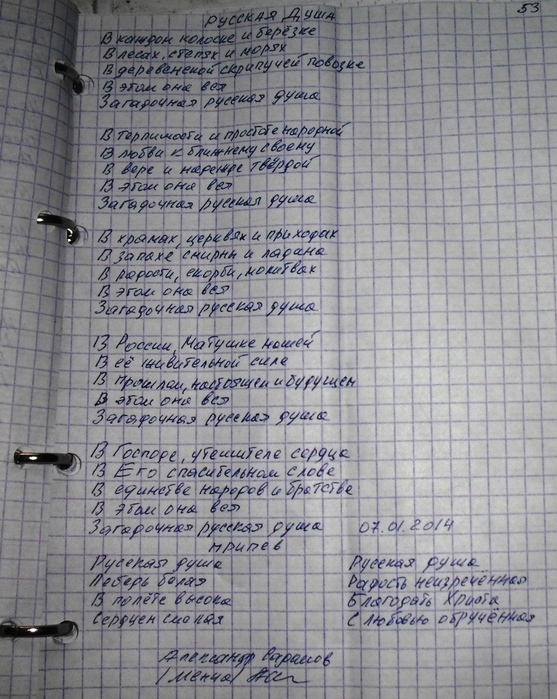 53
Русская Душа
В каждом колоске и берёзке
В лесах, степях и морях
В деревенской скрипучей повозке
В этом она вся
Загадочная русская душа
В терпимости и простоте народной
В любви к ближнему своему
В вере и надежде твёрдой
В этом она вся
Загадочная русская душа
В храмах, церквях и приходах
В запахе смирны и ладана
В радости, скорби, молитвах
В этом она вся
Загадочная русская душа
В России, Матушке нашей
В её живительной силе
В прошлом, настоящем и будущем
В этом она вся
Загадочная русская душа
В Господе, утешителе сердца
В Его спасительном слове
В единстве народов и братстве
В этом она вся
Загадочная русская душа 07.01.2014
припев
Русская душа
Лебедь белая
В полёте высока
Сердцем смелая
Русская душа
Радость неизречённая
Благодать Христа
С любовью обручённая
Александр